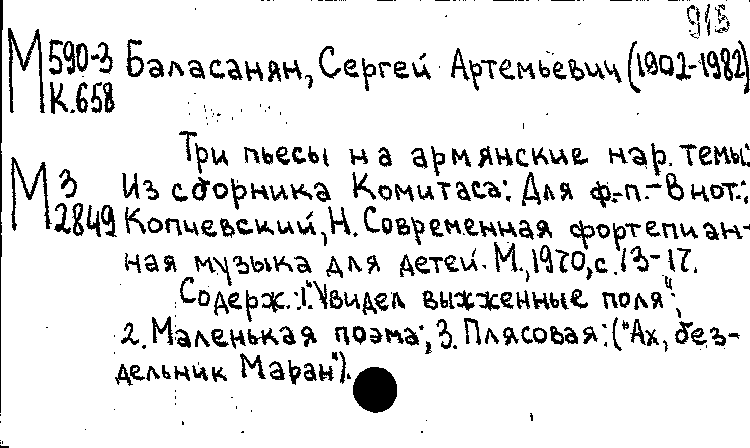 91Б
М 590-3 Баласанян, Сергей Артемьевич (1902-1982)
К.658
Три пьесы на армянские нар. темы:
М 3 Из сборника Комитаса: Для ф.-п.- В нот.:
2849 Копчевский, Н. Современная фортепиан-
ная музыка для детей. М., 1970, с. 13-17.
Содерж.: 1."Увидел выжженные поля";
2. Маленькая поэма; 3. Плясовая: ("Ах, без-
дельник Маран").